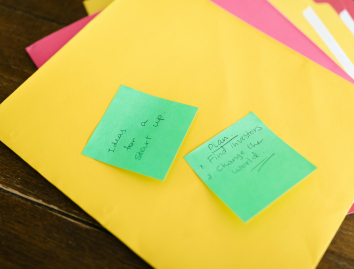 Ideas
for a
start up
Plan
1. Find investors
2. Change the
world